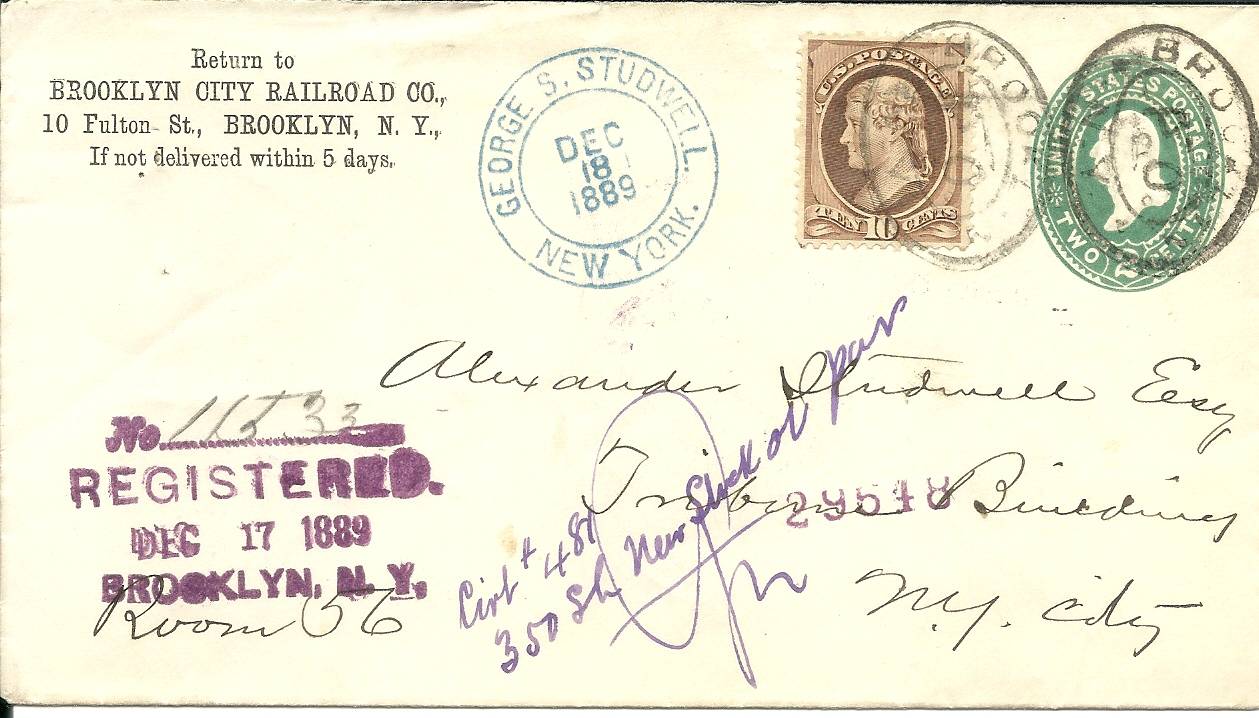 Return to
BROOKLYN CITY RAILROAD CO.,
10 Fulton St., BROOKLYN, N. Y.,
If not delivered within 5 days.
GEORGE S. STUDWELL.
DEC
18
1889
NEW YORK.
U.S. POSTAGE
TEN 10 CENTS
UNITED STATES POSTAGE
TWO 2 CENTS
BROO
Alexander Studwell Esq
Tribune Building
N.Y. City
Room 56
No. 11533
REGISTERED.
DEC 17 1889
BROOKLYN, N. Y.
29518
Cirt # 481
350 Sh New Stock at par